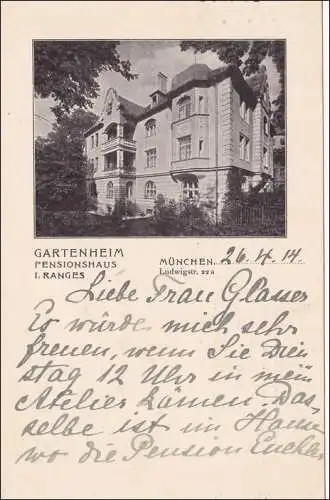 GARTENHEIM
PENSIONSHAUS
I. RANGES
MÜNCHEN, 26.4.14.
Ludwigstr. 22a
Liebe Frau Glasser
Es würde mich sehr
freuen, wenn Sie Dien
stag 12 Uhr in mein
Atelier kämen. Das-
selbe ist im Hause
wo die Pension